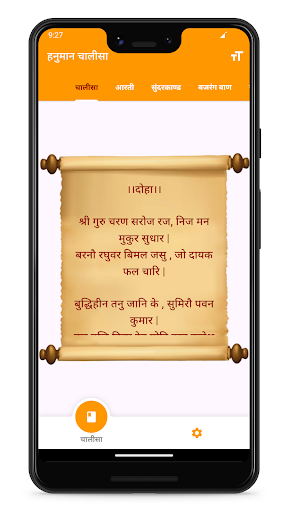 9:27
हनुमान चालीसा
चालीसा आरती सुंदरकाण्ड बजरंग बाण
।।दोहा।।
श्री गुरु चरण सरोज रज, निज मन
मुकुर सुधार |
बरनौ रघुवर बिमल जसु , जो दायक
फल चारि |
बुद्धिहीन तनु जानि के , सुमिरौ पवन
कुमार |
चालीसा